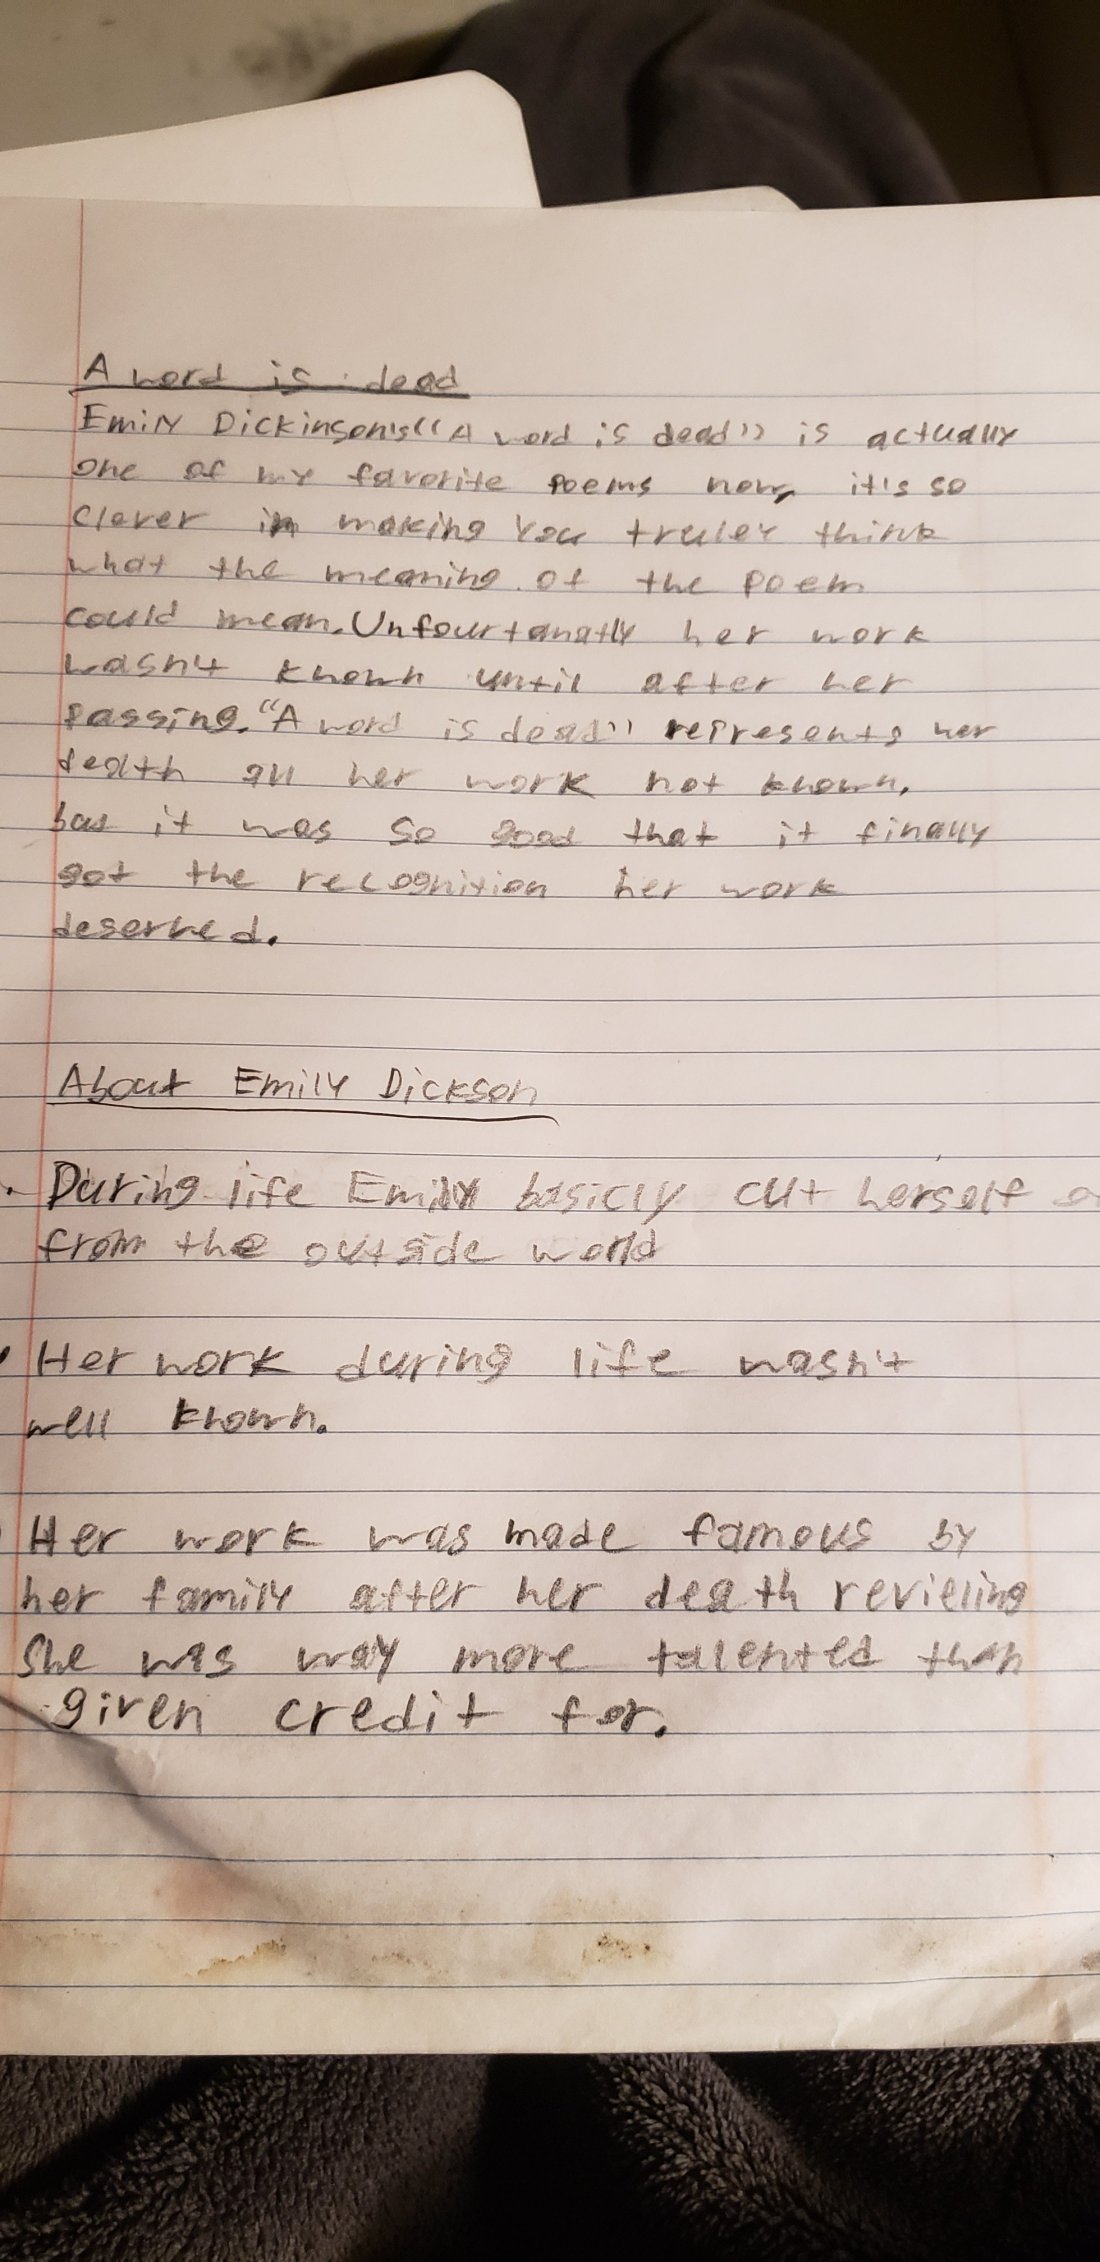 A word is dead
Emily Dickinson's "A word is dead" is actually
one of my favorite poems now, it's so
clever in making you truley think
what the meaning of the poem
could mean. Unfourtanatly her work
wasn't known until after her
passing. "A word is dead" represents her
death all her work not known,
but it was so good that it finally
got the recognition her work
deserved.
About Emily Dickson
. During life Emily basicly cut herself
from the outside world
Her work during life wasn't
well known.
Her work was made famous by
her family after her death revieling
she was way more talented than
given credit for.